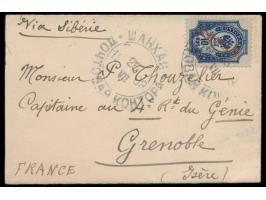 Via Sibérie
ШАНХАЙ
ПОЧТОВАЯ КОНТОРА
Monsieur P. Thouzellier
Capitaine au 4e Rt du Génie
Grenoble
(Isère)
FRANCE